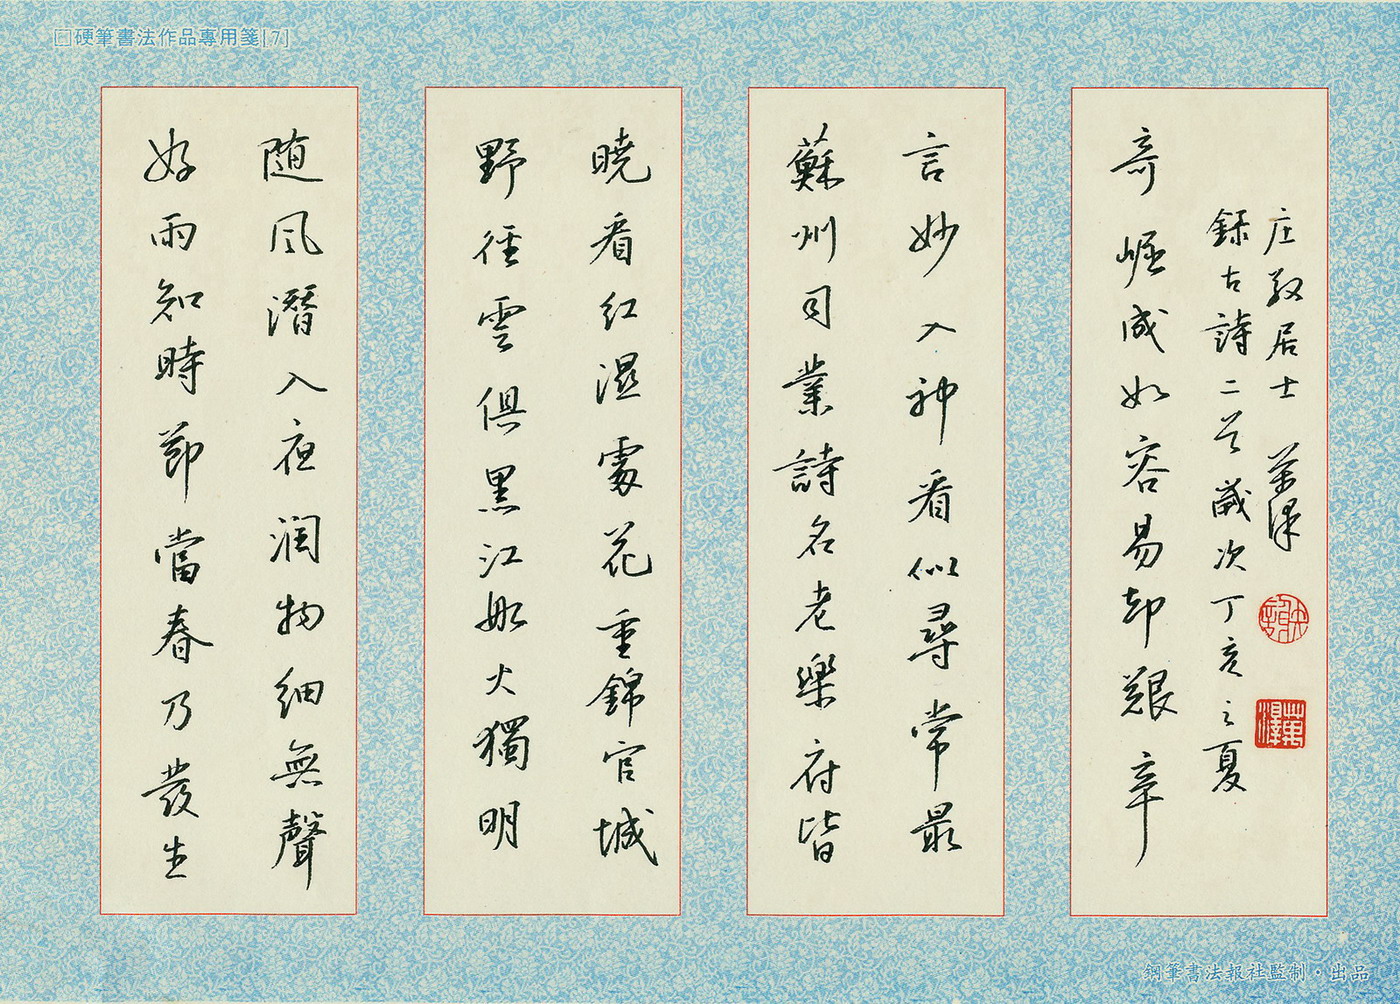 □硬筆書法作品專用箋[7]
好雨知時節當春乃發生
随风潛入夜润物細無聲
野徑雲俱黑江船火獨明
曉看紅濕處花重錦官城
蘇州司業詩名老樂府皆
言妙入神看似尋常最
奇崛成如容易却艱辛
錄古詩二首歲次丁亥之夏
庄敬居士
鋼筆書法報社監制·出品